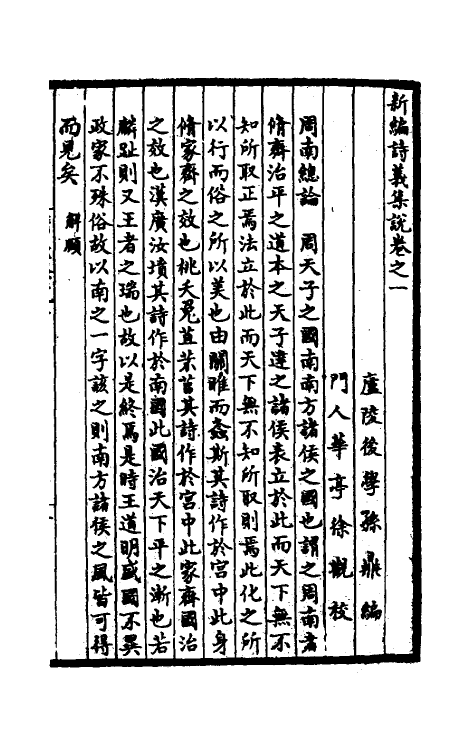 新編詩義集說卷之一
廬陵後學孫鼎編
門人華亭徐觀校
周南總論　周天子之國南南方諸侯之國也謂之周南者
脩齊治平之道本之天子達之諸侯表立於此而天下無不
知所取正焉法立於此而天下無不知所取則焉此化之所
以行而俗之所以美也由關雎而螽斯其詩作於宮中此身
脩家齊之效也桃夭兔罝芣苢其詩作於宮中此家齊國治
之效也漢廣汝墳其詩作於南國此國治天下平之漸也若
麟趾則又王者之瑞也故以是終焉是時王道明盛國不異
政家不殊俗故以南之一字該之則南方諸侯之風皆可得
而見矣　解頤